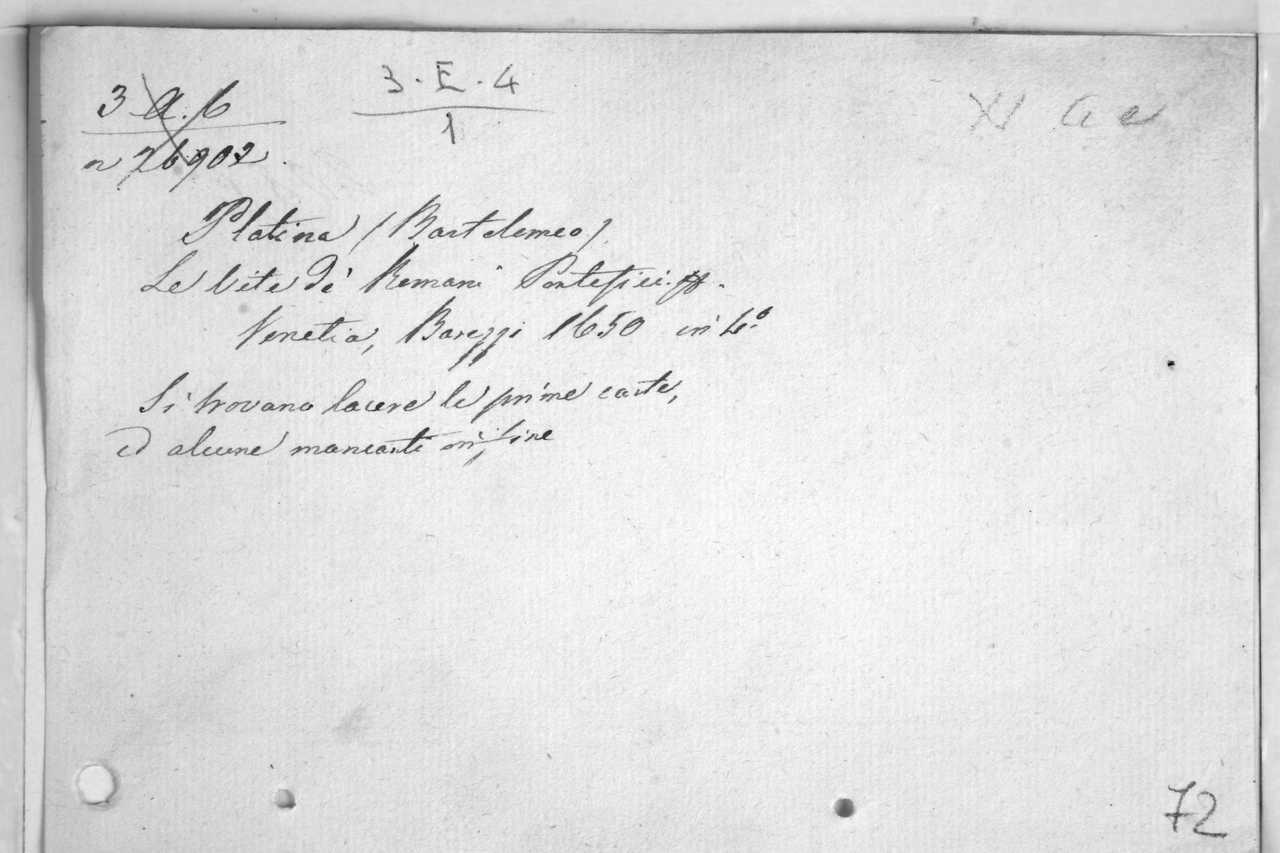 3 a. 6
n 26902.
3. E. 4
1
XI
Platina (Bartolomeo)
Le Vite de' Romani Pontefici.
Venetia, Barezzi 1650 in 4.º
Si trovano lacere le prime carte,
ed alcune mancanti in fine
72